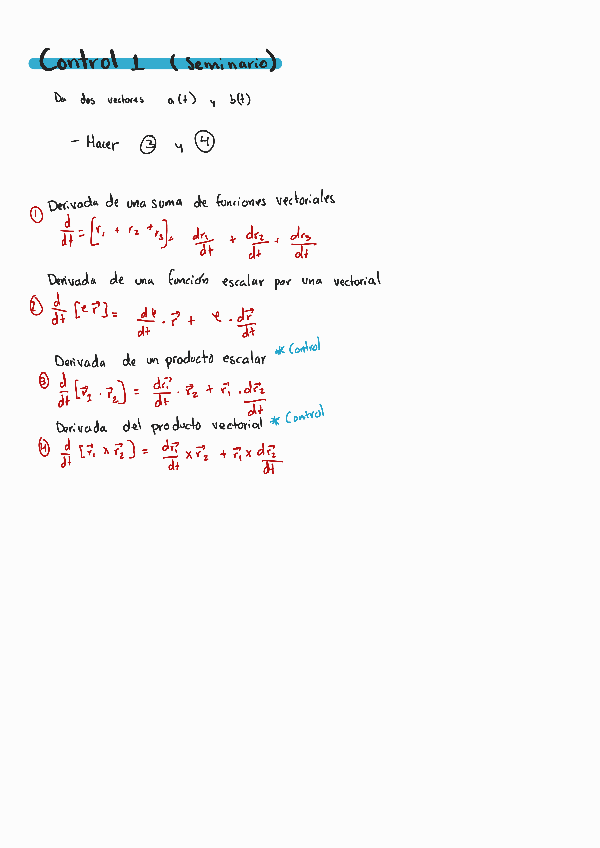 Control 1 (Seminario)
Da dos vectores a(t) y b(t)
- Hacer ③ y ④
Derivada de una suma de funciones vectoriales
① d/dt = [r₁ + r₂ + r₃], dr₁/dt + dr₂/dt + dr₃/dt
Derivada de una función escalar por una vectorial
② d/dt [e r⃗] = de/dt · r⃗ + e · dr⃗/dt
Derivada de un producto escalar * Control
③ d/dt [r⃗₁ · r⃗₂] = dr⃗₁/dt · r⃗₂ + r⃗₁ · dr⃗₂/dt
Derivada del producto vectorial * Control
④ d/dt [r⃗₁ × r⃗₂] = dr⃗₁/dt × r⃗₂ + r⃗₁ × dr⃗₂/dt